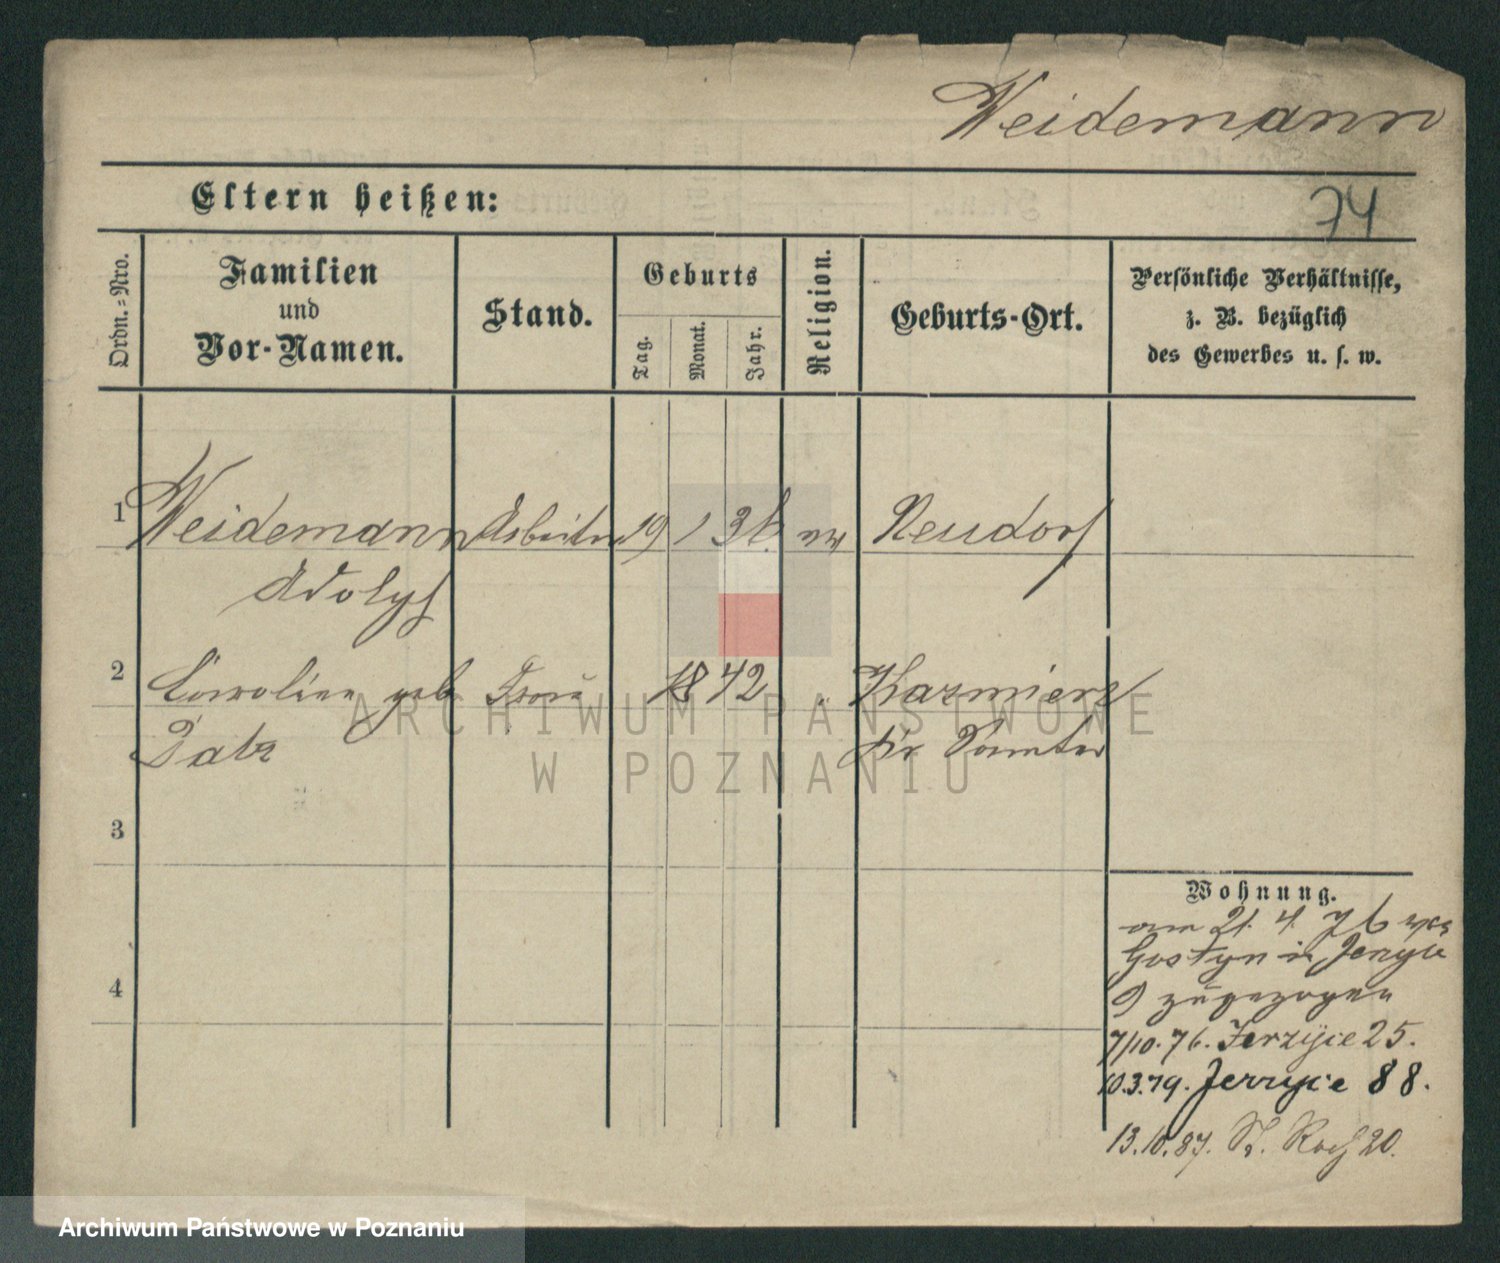 Weidemann
Eltern heißen:
74
Ordn.=Nro.
Familien
und
Vor-Namen.
Stand.
Geburts
Tag.
Monat.
Jahr.
Religion.
Geburts-Ort.
Persönliche Verhältnisse,
z. B. bezüglich
des Gewerbes u. s. w.
1 Weidemann Arbeiter 19 1 36. ev Neudorf
Adolf
2 Caroline geb Frau 1842 Kazmierz
Kr Samter
3
4
Wohnung.
am 21. 4. 76 von
Gostyn in Jerzyce
9 zugezogen
7/10. 76. Jerzyce 25.
10.3.79. Jerzyce 88.
13.10.87. St. Roch 20.
ARCHIWUM PAŃSTWOWE
W POZNANIU
Archiwum Państwowe w Poznaniu